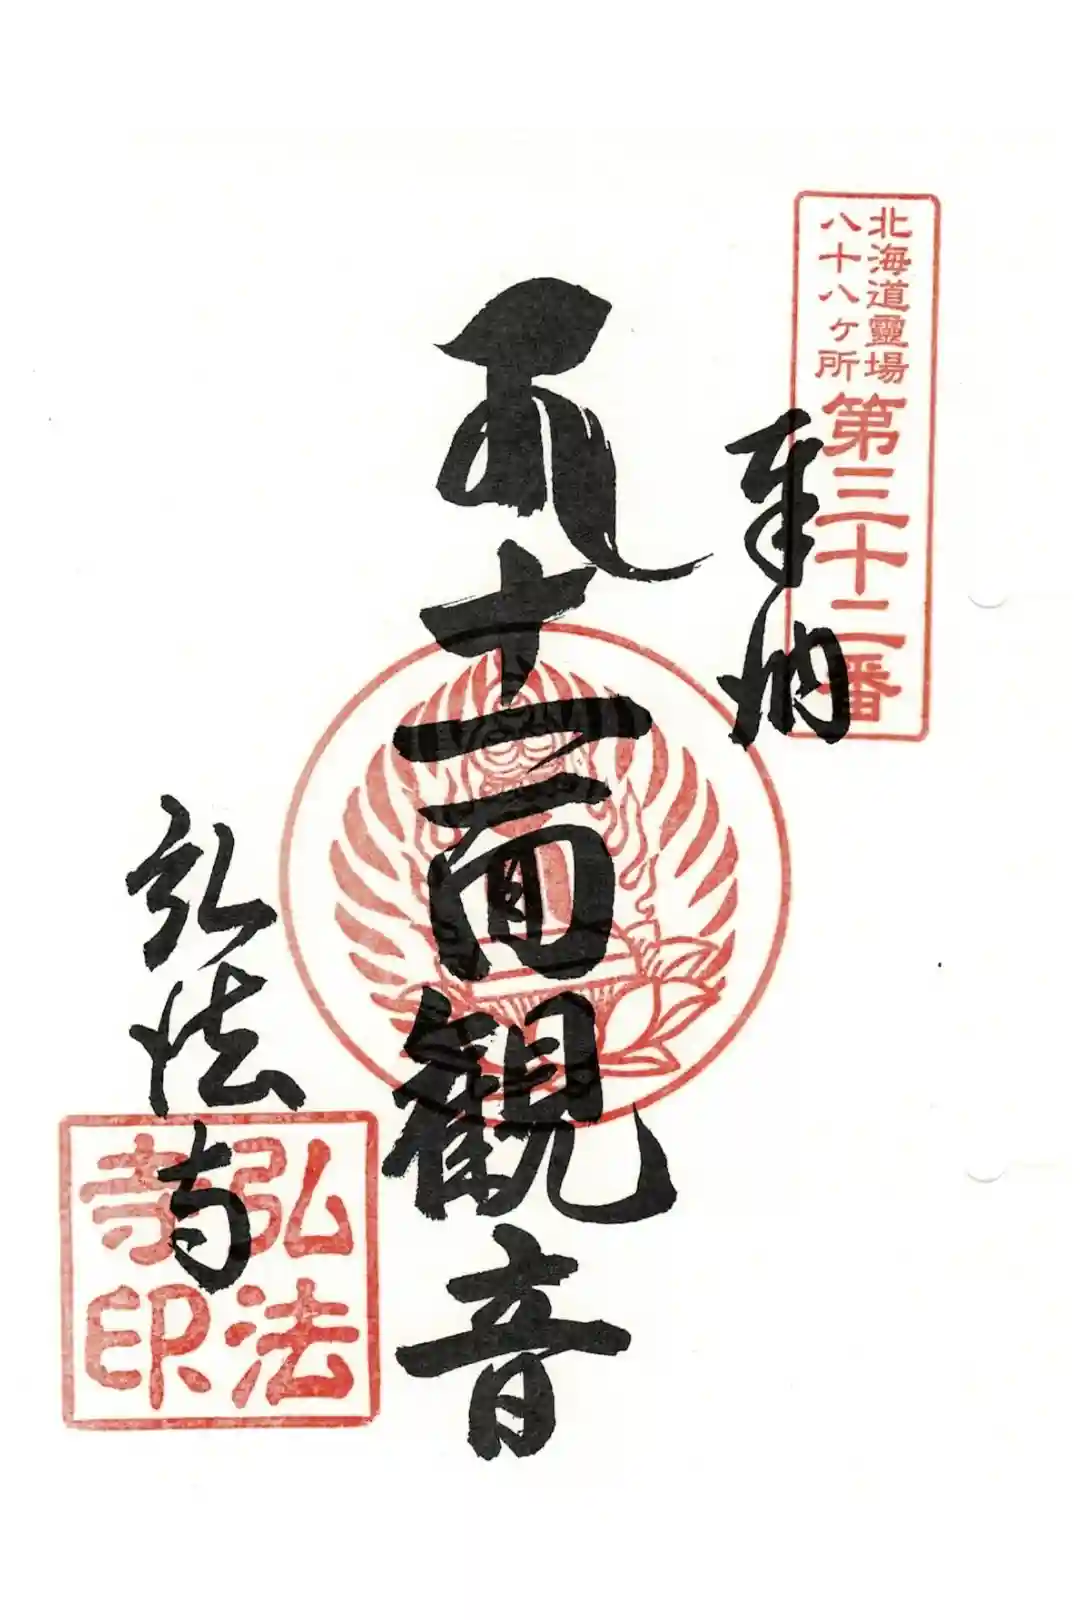 北海道靈場
八十八ヶ所
第三十二番
奉納
十一面観音
弘法寺
弘法
寺印